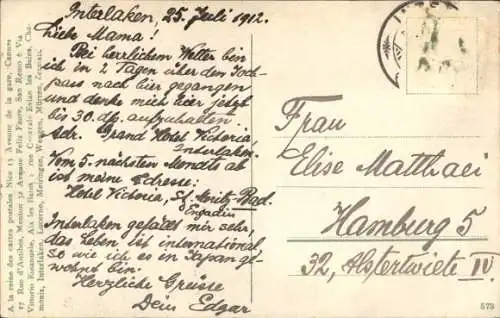 Interlaken, 25. Juli 1912.
Liebe Mama!
Bei herrlichem Wetter bin
ich in 2 Tagen über den Joch-
pass nach hier gegangen
und denke mich hier jetzt
bis 30. aufzuhalten.
Adr. Grand Hotel Victoria,
Interlaken.
Vom 5. nächsten Monats ab
ist meine Adresse:
Hotel Victoria, St. Moritz-Bad.
Engadin
Interlaken gefällt mir sehr,
das Leben ist international,
so wie ich es in Japan ge-
wohnt bin.
Herzliche Grüsse
Dein Edgar
Frau
Elise Matthaei
Hamburg 5
32, Alstertwiete IV
A la reine des cartes postales Nice 13 Avenue de la gare, Cannes
17 Rue d'Antibes, Menton 32 Avenue Felix Faure, San Remo Via
Vittorio Emanuele, Aix les Bains rue Centrale Evian les Bains,
Interlaken, Lucerne, Meiringen, Wengen, Mürren,
579